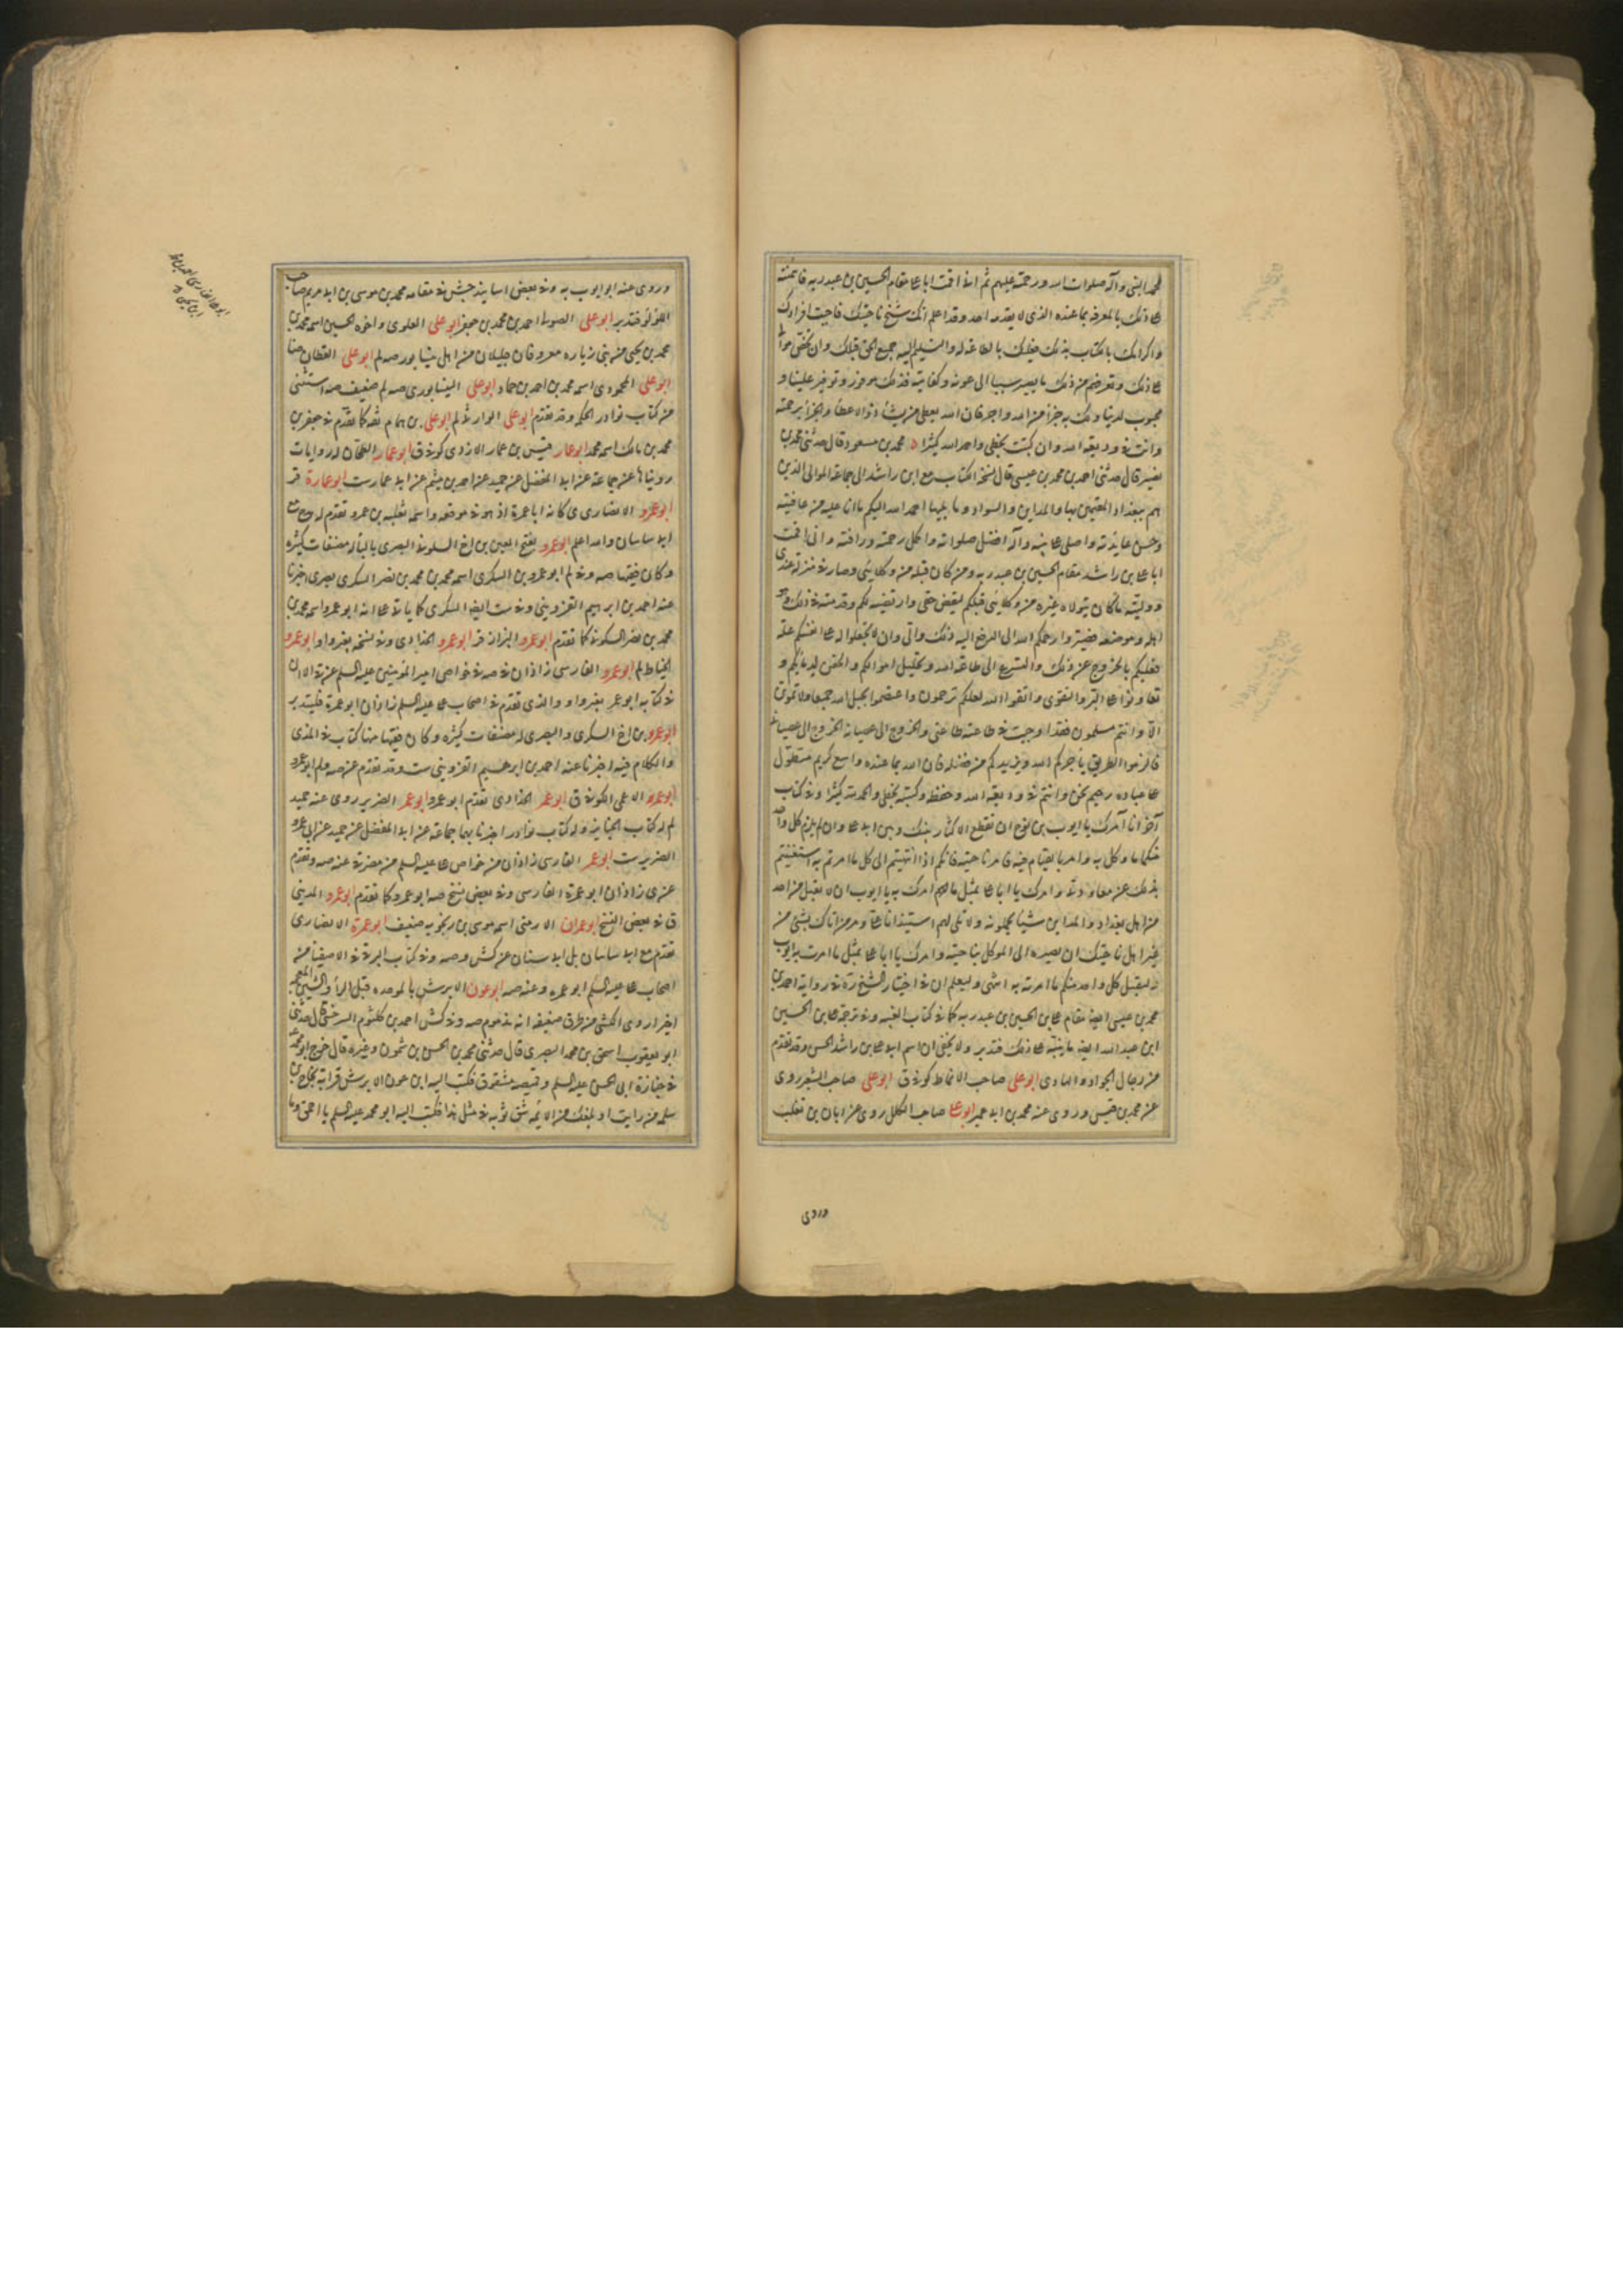 لمحمد النبي وآله صلوات الله ورحمته عليهم ثم اني اقمت ابا علي مقام الحسين بن عبد ربه فائتمنته
علي ذلك بالمعرفة بما عنده الذي لا يقدمه احد وقد اعلم انك شيخ ناحيتك فاحببت افرادك
واكرامك بالكتاب بذلك فعليك بالطاعة له والتسليم اليه جميع الحق قبلك وان تخص موالي
علي ذلك وتعرفهم من ذلك ما يصير سببا الى عونه وكفايته فذلك موفور وتوفير علينا و
محبوب لدينا ولك به جزاء من الله واجر فان الله يعطي من يشاء ذو الاعطاء والجزاء برحمته
وانت في وديعة الله وان كتبت بخطي واحمد الله كثيرا محمد بن مسعود قال حدثني محمد بن
نصير قال حدثني احمد بن محمد بن عيسى قال نسخة الكتاب مع ابن راشد الى جماعة الموالي الذين
هم ببغداد المقيمين بها والمداين والسواد وما يليها احمد الله اليكم ما انا عليه من عافيته
وحسن عايدته واصلي على نبيه وآله افضل صلواته واكمل رحمته ورافته واني اقمت
ابا علي بن راشد مقام الحسين بن عبد ربه ومن كان قبله من وكلائي وصار في منزلته عندي
ووليته ما كان يتولاه غيره من وكلائي قبلكم ليقبض حقي وارتضيته لكم وقدمته في ذلك وهو
اهله وموضعه فصيروا رحمكم الله الى الدفع اليه ذلك والي وان لا تجعلوا له على انفسكم علة
فعليكم بالخروج عن ذلك والتسرع الى طاعة الله وتحليل اموالكم والحقن لدمائكم و
تعاونوا على البر والتقوى واتقوا الله لعلكم ترحمون واعتصموا بحبل الله جميعا ولا تموتن
الا وانتم مسلمون فقد اوجبت في طاعته طاعتي والخروج الى عصيانه الخروج الى عصياني
فالزموا الطريق ياجركم الله ويزيدكم من فضله فان الله بما عنده واسع كريم متطول
على عباده رحيم نحن وانتم في وديعة الله وحفظه وكتبته بخطي والحمد لله كثيرا وفي كتاب
آخر انا آمرك يا ايوب بن نوح ان تقطع الاكثار بينك وبين ابي علي وان يلزم كل واحد
منكما ما وكل به وامر بالقيام فيه بامر ناحيته فانكم اذا انتهيتم الى كل ما امرتم به استغنيتم
بذلك عن معاودتي وامرك يا ابا علي بمثل ما امرك به يا ايوب ان لا تقبل من احد
من اهل بغداد والمداين شيئا يحملونه ولا تلي لهم استيذانا علي ومر من اتاك بشئ من
غير اهل ناحيتك ان يصيره الى الموكل بناحيته وامرك يا ابا علي بمثل ما امرت به ايوب
وليقبل كل واحد منكما ما امرته به انتهى وليعلم ان في اختيار الشيخ ره في رواية احمد بن
محمد بن عيسى ايضا مقام علي بن الحسين بن عبد ربه كما في كتاب الغيبة وفي ترجمة علي بن الحسين
ابن عبد الله ايضا ما ينبه على ذلك فتدبر ولا يخفى ان اسم ابي علي بن راشد الحسن وقد تقدم
من رجال الجواد والهادي ابو علي صاحب الانماط كوفي ق ابو علي صاحب الشعير روى
عن محمد بن قيس وروى عنه محمد بن ابي عمير ابو علي صاحب الكلل روى عن ابان بن تغلب
وروى
وروى عنه ابو ايوب به وفي بعض اسانيد جش في مقامه محمد بن موسى بن ابي مريم صاحب
اللؤلؤ فتدبر ابو علي الصولي احمد بن محمد بن جعفر ابو علي العلوي واخوه الحسين اسمه محمد بن
محمد بن يحيى من بني زياره معروفان جليلان من اهل نيشابور صه لم ابو علي القطان
ابو علي المحمودي اسمه محمد بن احمد بن حماد ابو علي النيشابوري صه لم ضعيف صه استثنى
من كتاب نوادر الحكمة وقد تقدم ابو علي الوارثي لم ابو علي بن همام ثقة كما تقدم في جعفر بن
محمد بن مالك اسمه محمد ابو عمار قيس بن عمار الازدي كوفي ق ابو عمار الطحان له روايات
رويناها عن جماعة عن ابي المفضل عن حميد عن احمد بن ميثم عن ابي عمار ست ابو عمارة قر
ابو عمرو الانصاري ي كانه ابا عمرة اذ هو في موضعه واسمه ثعلبة بن عمرو تقدم له مدح مع
ابي ساسان والله اعلم ابو عمرو بفتح العين بن اخ السلوني البصري بالباء له مصنفات كثيرة
وكان فقيها صه وفي لم ابو عمرو بن السكري اسمه محمد بن محمد بن نصر السكري بصري اخبرنا
عنه احمد بن ابراهيم القزويني وفي ست ايضا السكري كما ياتي على انه ابو عمرو اسمه محمد بن
محمد بن نصر السكوني كما تقدم ابو عمرو البزاز قر ابو عمرو الحذا دي وفي نسخة بغير واو ابو عمرو
الخياط لم ابو عمرو الفارسي زاذان في صه في خواص امير المؤمنين عليه السلم عن قي الا ان
في كتابه ابو عمر بغير واو والذي تقدم في اصحاب علي عليه السلم زاذان ابو عمرة فليتدبر
ابو عمرو بن اخ السكري والبصري له مصنفات كثيرة وكان فقيها منها كتاب في المذي
والكلام فيه اخبرنا عنه احمد بن ابرهيم القزويني ست وقد تقدم عن صه ولم ابو عمرو
ابو عمر الاعمى الكوفي ق ابو عمر الحذا دي تقدم ابو عمرو ابو عمر الضرير روى عنه حميد
لم له كتاب الجنايز وله كتاب نوادر اخبرنا بهما جماعة عن ابي المفضل عن حميد عن ابي عمرو
الضرير ست ابو عمر الفارسي زاذان من خواص علي عليه السلم من مضر قي عنه صه وتقدم
عن ي زاذان ابو عمرة الفارسي وفي بعض نسخ صه ابو عمرو كما تقدم ابو عمرو المديني
ق في بعض النسخ ابو عمران الارمني اسمه موسى بن زنجويه ضعيف ابو عمرة الانصاري
تقدم مع ابي ساسان بل ابي سنان عن كش وصه وفي كتاب البرقي في الاصفياء من
اصحاب علي عليه السلم ابو عمره وعنه صه ابو عون الابرش بالموحده قبل الراء والشين المعجمة
اخيرا روى الكشي من طرق ضعيفة انه مذموم صه وفي كش احمد بن كلثوم السرخسي قال حدثني
ابو يعقوب اسحق بن محمد البصري قال حدثني محمد بن الحسن بن شمون وغيره قال خرج ابو محمد
في جنازة ابي الحسن عليه السلم وقميصه مشقوق فكتب اليه ابن عون الابرش قرابة نجاح بن
سلمه من رايت او بلغك من الائمه شق ثوبه في مثل هذا فكتب اليه ابو محمد عليه السلم يا احمق وما